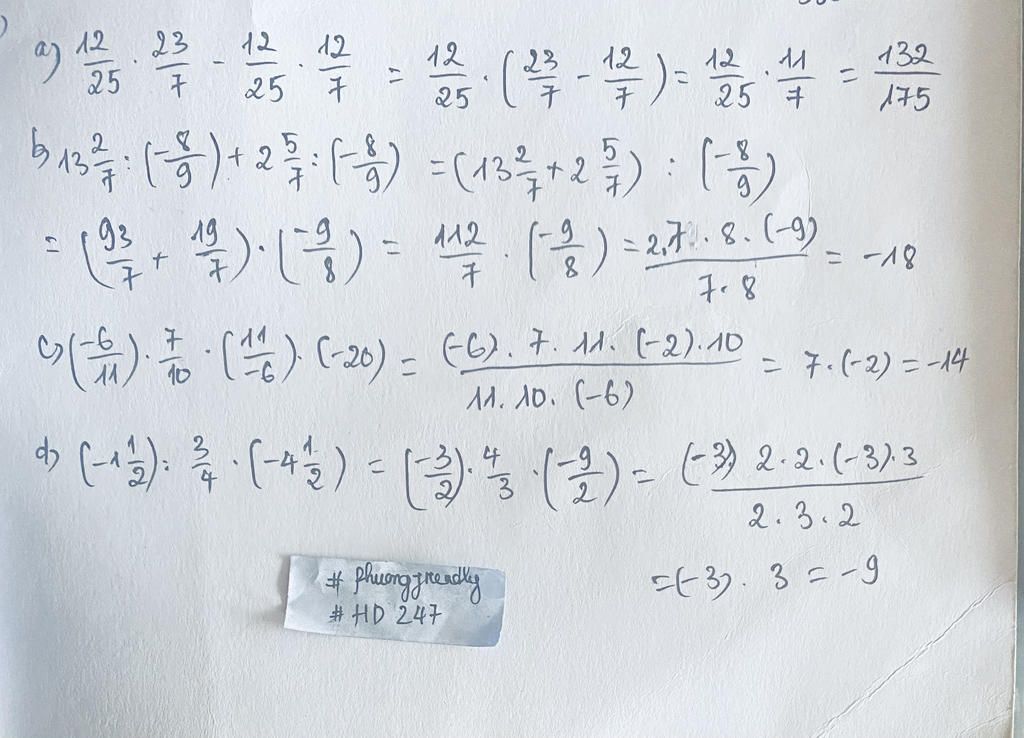 a) 12/25 . 23/7 - 12/25 . 12/7 = 12/25 . (23/7 - 12/7) = 12/25 . 11/7 = 132/175
b) 13 2/7 : (-8/9) + 2 5/7 : (-8/9) = (13 2/7 + 2 5/7) : (-8/9)
= (93/7 + 19/7) . (-9/8) = 112/7 . (-9/8) = 2.7.8.(-9)/7.8 = -18
c) (-6/11) . 7/10 . (11/-6) . (-20) = (-6).7.11.(-2).10/11.10.(-6) = 7.(-2) = -14
d) (-1 1/2) : 3/4 . (-4 1/2) = (-3/2) . 4/3 . (-9/2) = (-3) 2.2.(-3).3/2.3.2
= (-3) . 3 = -9
# HD 247